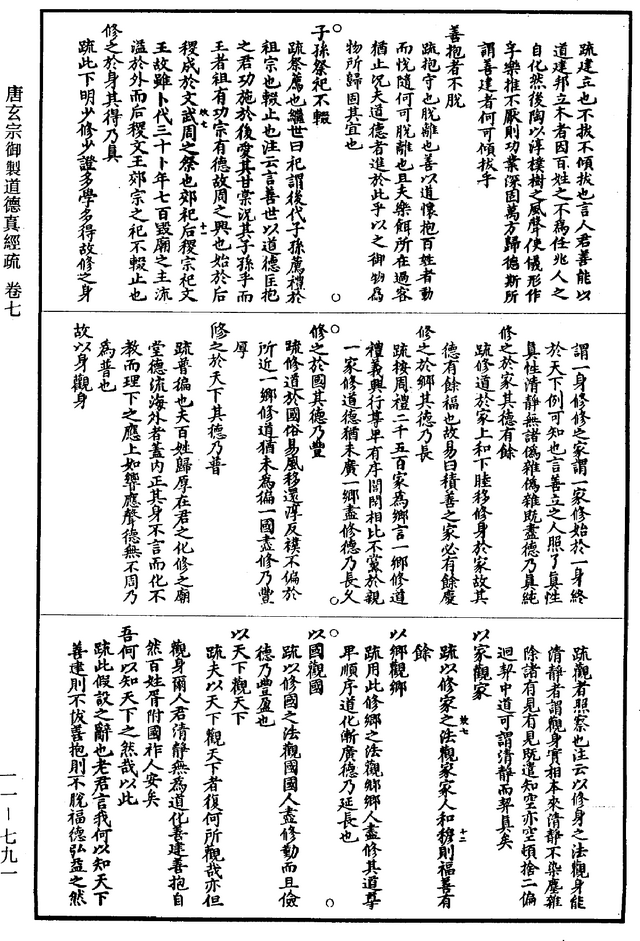 唐玄宗御製道德真經疏 卷七
一一—七九一
疏建立也不拔不傾拔也言人君善能以
道建邦立本者因百姓之不為任兆人之
自化然後陶以淳樸樹之風聲使儀形作
孚樂推不厭則功業深固萬方歸德斯所
謂善建者何可傾拔乎
善抱者不脫
疏抱守也脫離也善以道懷抱百姓者動
而悅隨何可脫離也且夫樂餌所在過客
猶止況夫道德者進於此乎以之御物為
物所歸固其宜也
子孫祭祀不輟
疏祭薦也繼世曰祀謂後代子孫薦禮於
祖宗也輟止也注云言善世以道德匡抱
之君功施於後愛其甘棠況其子孫乎而
王者祖有功宗有德故周之興也始於后
稷成於文武周之祭也郊祀后稷宗祀文
王故雖卜代三十卜年七百毀廟之主流
溢於外而后稷文王郊宗之祀不輟止也
修之於身其德乃真
疏此下明少修少證多學多得故修之身
謂一身修修之家謂一家修始於一身終
於天下例可知也言善立之人照了真性
真性清靜無諸偽雜偽雜既盡德乃真純
修之於家其德有餘
疏修道於家上和下睦移修身於家故其
德有餘福也故易曰積善之家必有餘慶
修之於鄉其德乃長
疏按周禮二千五百家為鄉言一鄉修道
禮義興行尊卑有序閭閻相比不黨於親
一家修道德猶未廣一鄉盡修德乃長久
修之於國其德乃豐
疏修道於國俗易風移還淳反樸不偏於
所近一鄉修道猶未為徧一國盡修乃豐
厚
修之於天下其德乃普
疏普徧也夫百姓歸厚在君之化修之廟
堂德流海外者蓋內正其身不言而化不
教而理下之應上如響應聲德無不周乃
為普也
故以身觀身
疏觀者照察也注云以修身之法觀身能
清靜者謂觀身實相本來清靜不染塵雜
除諸有見有見既遣知空亦空頓捨二偏
迥契中道可謂清靜而契真矣
以家觀家
疏以修家之法觀家家人和穆則福善有
餘
以鄉觀鄉
疏用此修鄉之法觀鄉鄉人盡修其道尊
卑順序道化漸廣德乃延長也
以國觀國
疏以修國之法觀國國人盡修勤而且儉
德乃豐盈也
以天下觀天下
疏夫以天下觀天下者復何所觀哉亦但
觀身爾人君清靜無為道化善建善抱自
然百姓胥附國祚人安矣
吾何以知天下之然哉以此
疏此假設之辭也老君言我何以知天下
善建則不拔善抱則不脫福德弘益之然